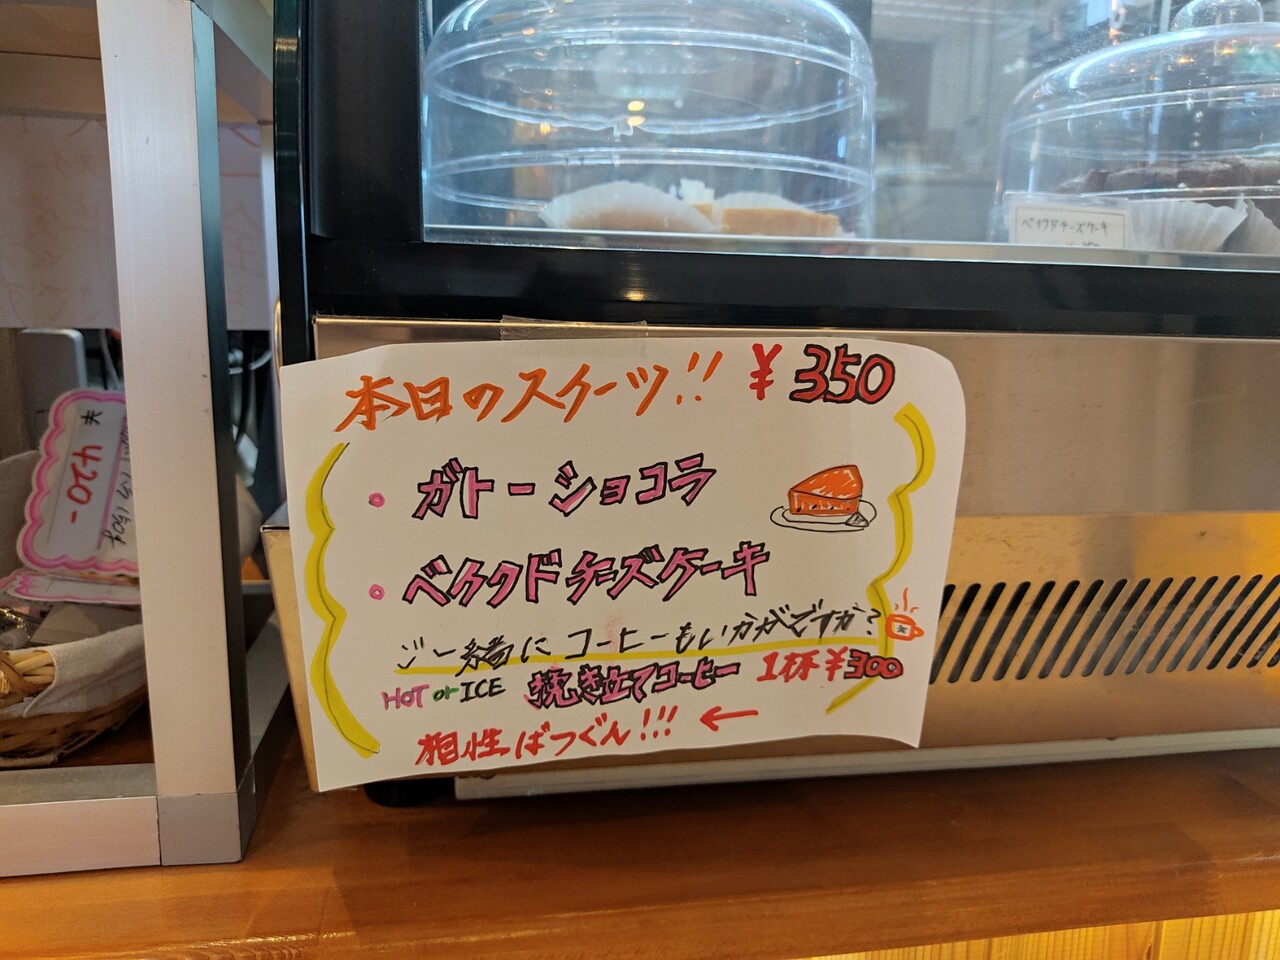 本日のスイーツ!! ¥350
・ガトーショコラ
・ベイクドチーズケーキ
ご一緒にコーヒーもいかがですか?
HOT or ICE 挽き立てコーヒー 1杯¥300
相性ばつぐん!!! ←
ベイクドチーズケーキ
420-